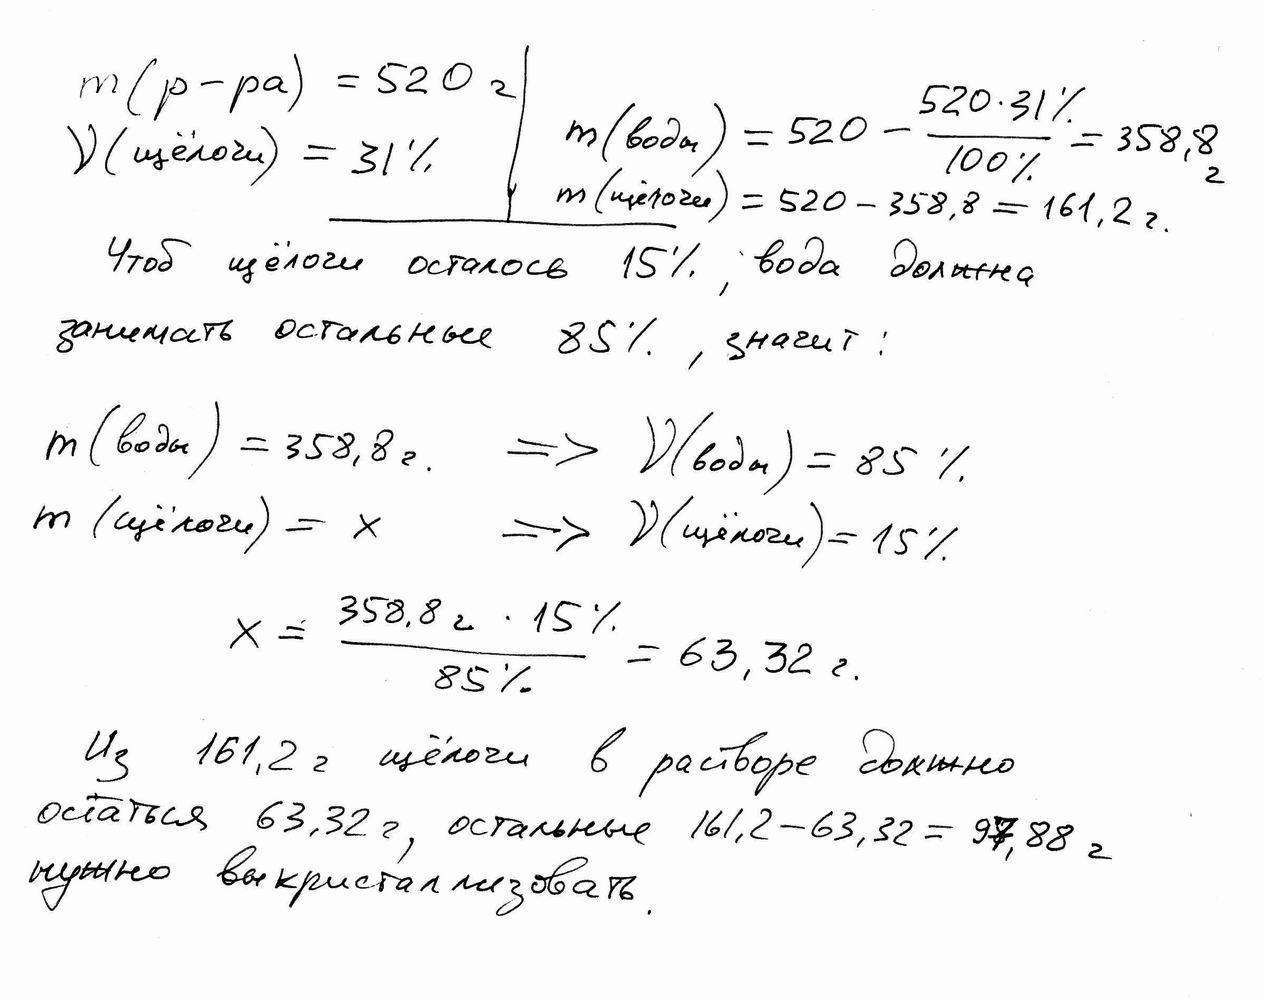 m(р-ра) = 520 г
ν(щёлочи) = 31%
m(воды) = 520 - 520·31% / 100% = 358,8 г
m(щёлочи) = 520 - 358,8 = 161,2 г.
Чтоб щёлочи осталось 15%, вода должна
занимать остальные 85%, значит:
m(воды) = 358,8 г. => ν(воды) = 85%
m(щёлочи) = x => ν(щёлочи) = 15%
x = 358,8 г · 15% / 85% = 63,32 г.
Из 161,2 г щёлочи в растворе должно
остаться 63,32 г, остальные 161,2-63,32 = 97,88 г
нужно выкристаллизовать.